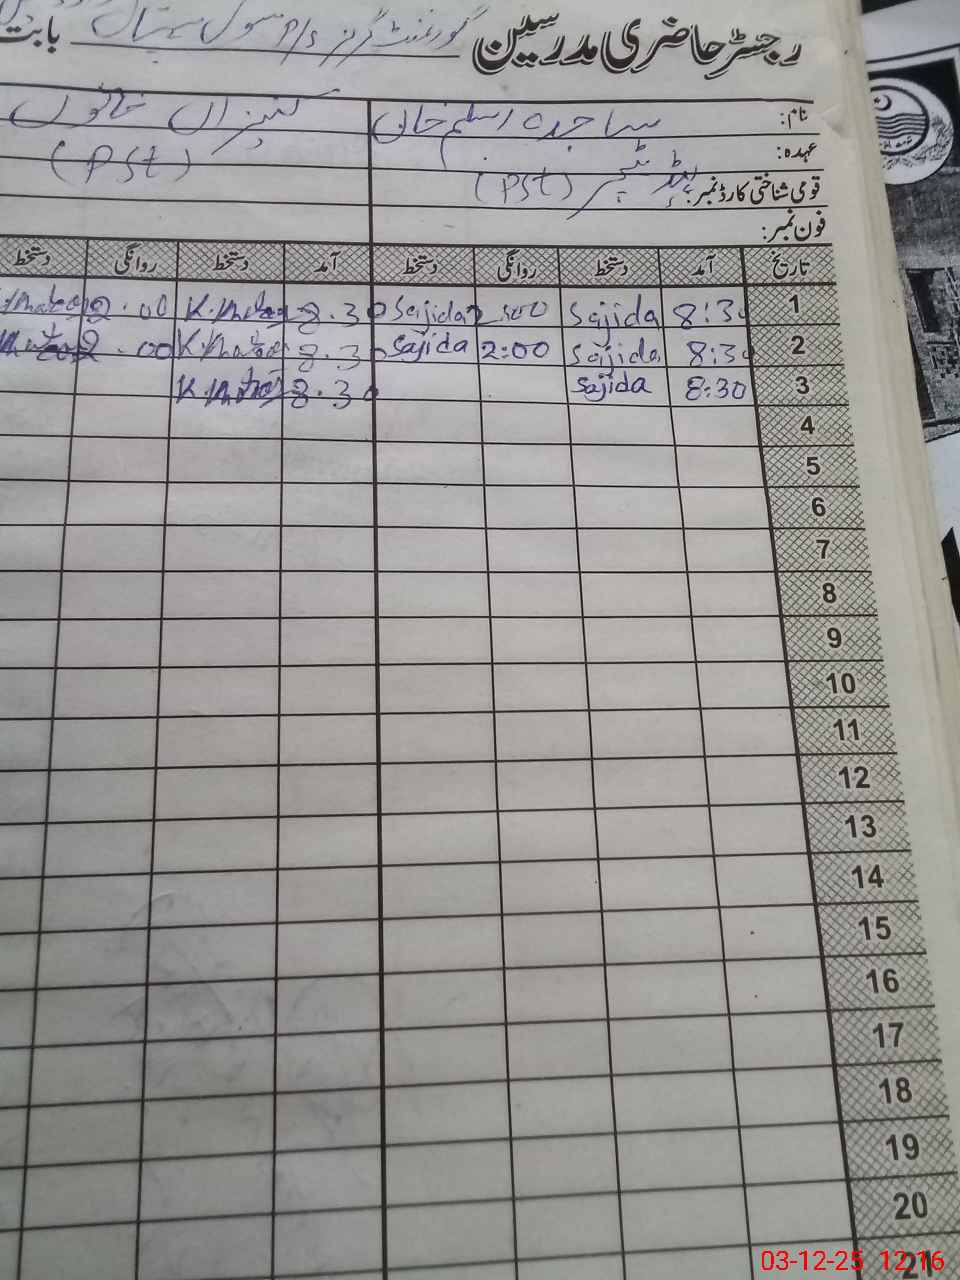 رجسٹر حاضری مدرسین گورنمنٹ گرلز P/S سول ہسپتال بابت
نام: ساجدہ اسلم خان کنیزاں خاتون
عہدہ: ہیڈ ٹیچر (PST) (PST)
قومی شناختی کارڈ نمبر:
فون نمبر:
تاریخ آمد دستخط روانگی دستخط آمد دستخط روانگی دستخط
1 8:30 Sajida 2:00 Sajida 8.30 K.Khatoon 2.00
2 8:30 Sajida 2:00 Sajida 8.30 K.Khatoon 2.00
3 8:30 Sajida 8.30 K.Khatoon
4
5
6
7
8
9
10
11
12
13
14
15
16
17
18
19
20
21
03-12-25 12:16